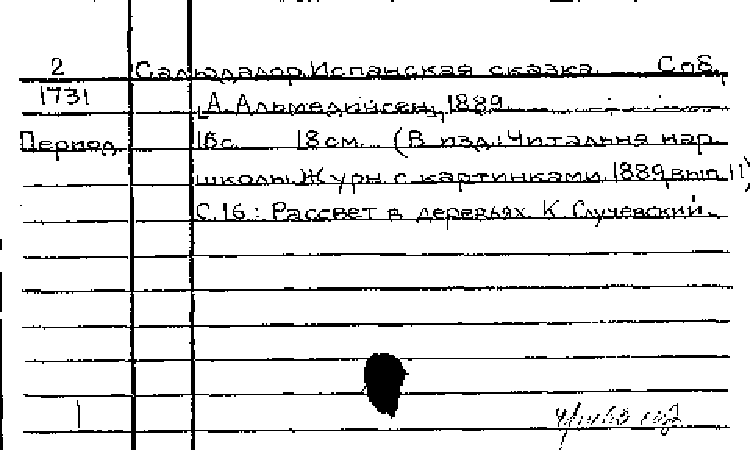 2 Салюдадор. Испанская сказка Спб,
1731 А. Альмедийсен, 1889
Период. 16с. 18см. (В изд: Читальня нар.
школы. Журн. с картинками. 1889, вып. 11)
С. 16: Рассвет в деревьях. К. Случевский.
1